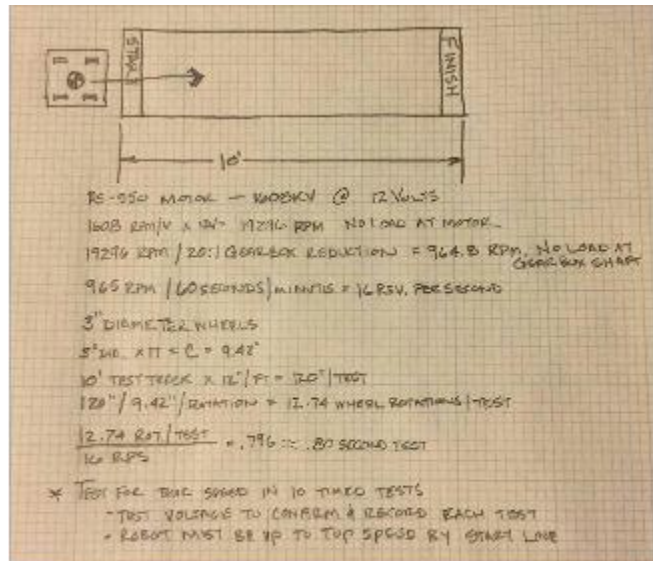 START
FINISH
10'
RS-550 MOTOR - 1608KV @ 12 VOLTS
1608 RPM/V x 12V = 19296 RPM NO LOAD AT MOTOR
19296 RPM / 20:1 GEARBOX REDUCTION = 964.8 RPM, NO LOAD AT
GEARBOX SHAFT
965 RPM / 60 SECONDS/MINUTES = 16 REV. PER SECOND
3" DIAMETER WHEELS
3" DIA. x π = C = 9.42"
10' TEST TRACK x 12"/FT = 120"/TEST
120" / 9.42"/ROTATION = 12.74 WHEEL ROTATIONS/TEST
12.74 ROT/TEST
16 RPS
= .796 ≈ .80 SECOND TEST
* TEST FOR TRUE SPEED IN 10 TIMED TESTS
- TEST VOLTAGE TO CONFIRM & RECORD EACH TEST
- ROBOT MUST BE UP TO TOP SPEED BY START LINE